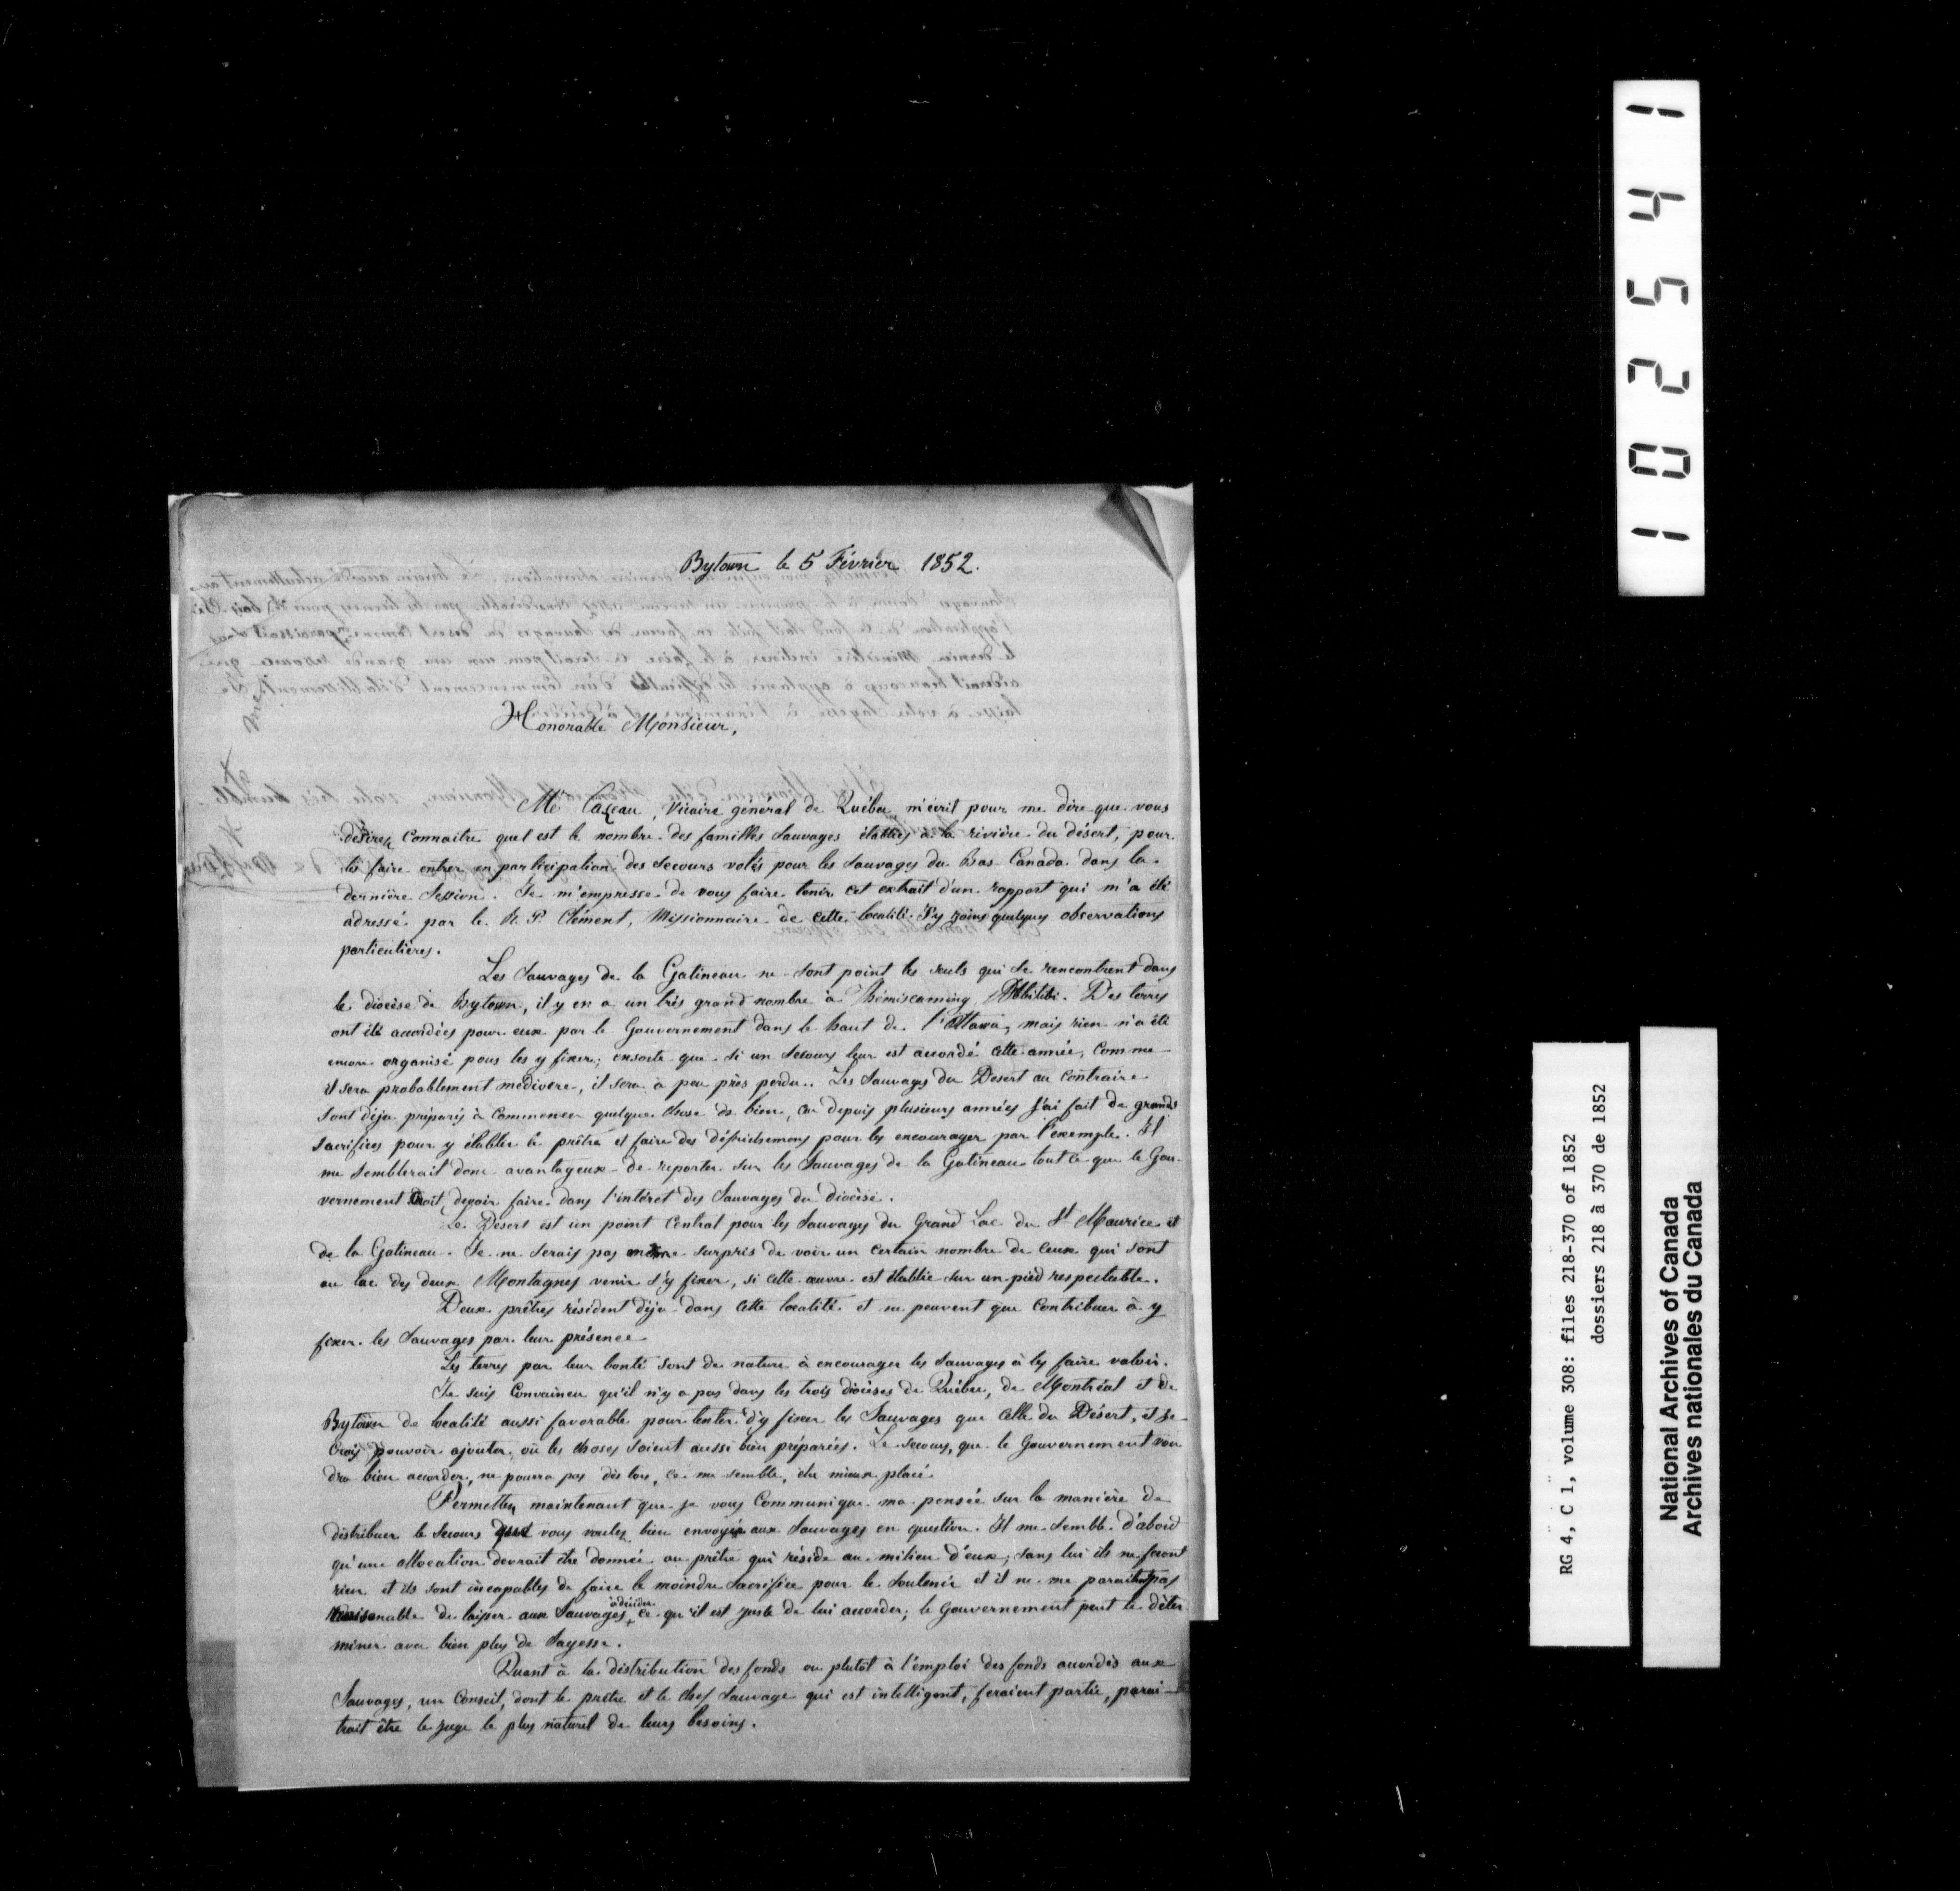 Bytown le 5 Février 1852.
Honorable Monsieur,
Mr Cazeau, Vicaire général de Québec m'écrit pour me dire que vous
désirez connaitre quel est le nombre des familles Sauvages établies à la rivière du désert, pour
les faire entrer en participation des secours votés pour les Sauvages du Bas Canada dans la
dernière Session. Je m'empresse de vous faire tenir cet extrait d'un rapport qui m'a été
adressé par le R. P. Clément, Missionnaire de cette localité. J'y joins quelques observations
particulières.
Les Sauvages de la Gatineau ne sont point les seuls qui se rencontrent dans
le diocèse de Bytown, il y en a un très grand nombre à Témiscaming, Abbitibi. Des terres
ont été accordées pour eux par le Gouvernement dans le haut de l'Ottawa, mais rien n'a été
encore organisé pour les y fixer; ensorte que si un secours leur est accordé cette année, comme
il sera probablement médiocre, il sera à peu près perdu. Les Sauvages du Desert au contraire
sont déja préparés à commencer quelque chose de bien, car depuis plusieurs années j'ai fait de grands
sacrifices pour y établir le prêtre et faire des défrichemens pour les encourager par l'exemple. Il
me semblerait donc avantageux de reporter sur les Sauvages de la Gatineau tout ce que le Gou-
vernement croit devoir faire dans l'intéret des Sauvages du diocèse.
Le Désert est un point central pour les Sauvages du Grand Lac du St Maurice et
de la Gatineau. Je ne serais pas même surpris de voir un certain nombre de ceux qui sont
au lac des deux Montagnes venir s'y fixer, si cette œuvre est établie sur un pied respectable.
Deux prêtres résident déja dans cette localité et ne peuvent que contribuer à y
fixer les Sauvages par leur présence
Les terres par leur bonté sont de nature à encourager les Sauvages à les faire valoir.
Je suis convaincu qu'il n'y a pas dans les trois diocèses de Québec, de Montréal et de
Bytown de localité aussi favorable pour tenter d'y fixer les Sauvages que celle du Désert, et je
crois pouvoir ajouter, où les choses soient aussi bien préparées. Le secours, que le Gouvernement vou
dra bien accorder, ne pourra pas dès lors, ce me semble, être mieux placé.
Permettez maintenant que je vous communique ma pensée sur la manière de
distribuer le secours que vous voulez bien envoyer aux Sauvages en question. Il me semble d'abord
qu'une allocation devrait être donnée au prêtre qui réside au milieu d'eux; sans lui ils ne feront
rien et ils sont incapables de faire le moindre sacrifice pour le soutenir et il ne me parait pas
raisonable de laisser aux Sauvages à décider ce qu'il est juste de lui accorder; le Gouvernement peut le déter
miner avec bien plus de Sagesse.
Quant à la distribution des fonds ou plutôt à l'emploi des fonds accordés aux
Sauvages, un Conseil, dont le prêtre et le chef Sauvage qui est intelligent, feraient partie, parai-
trait être le juge le plus naturel de leurs besoins.
102541
RG 4, C 1, volume 308: files 218-370 of 1852
dossiers 218 à 370 de 1852
National Archives of Canada
Archives nationales du Canada